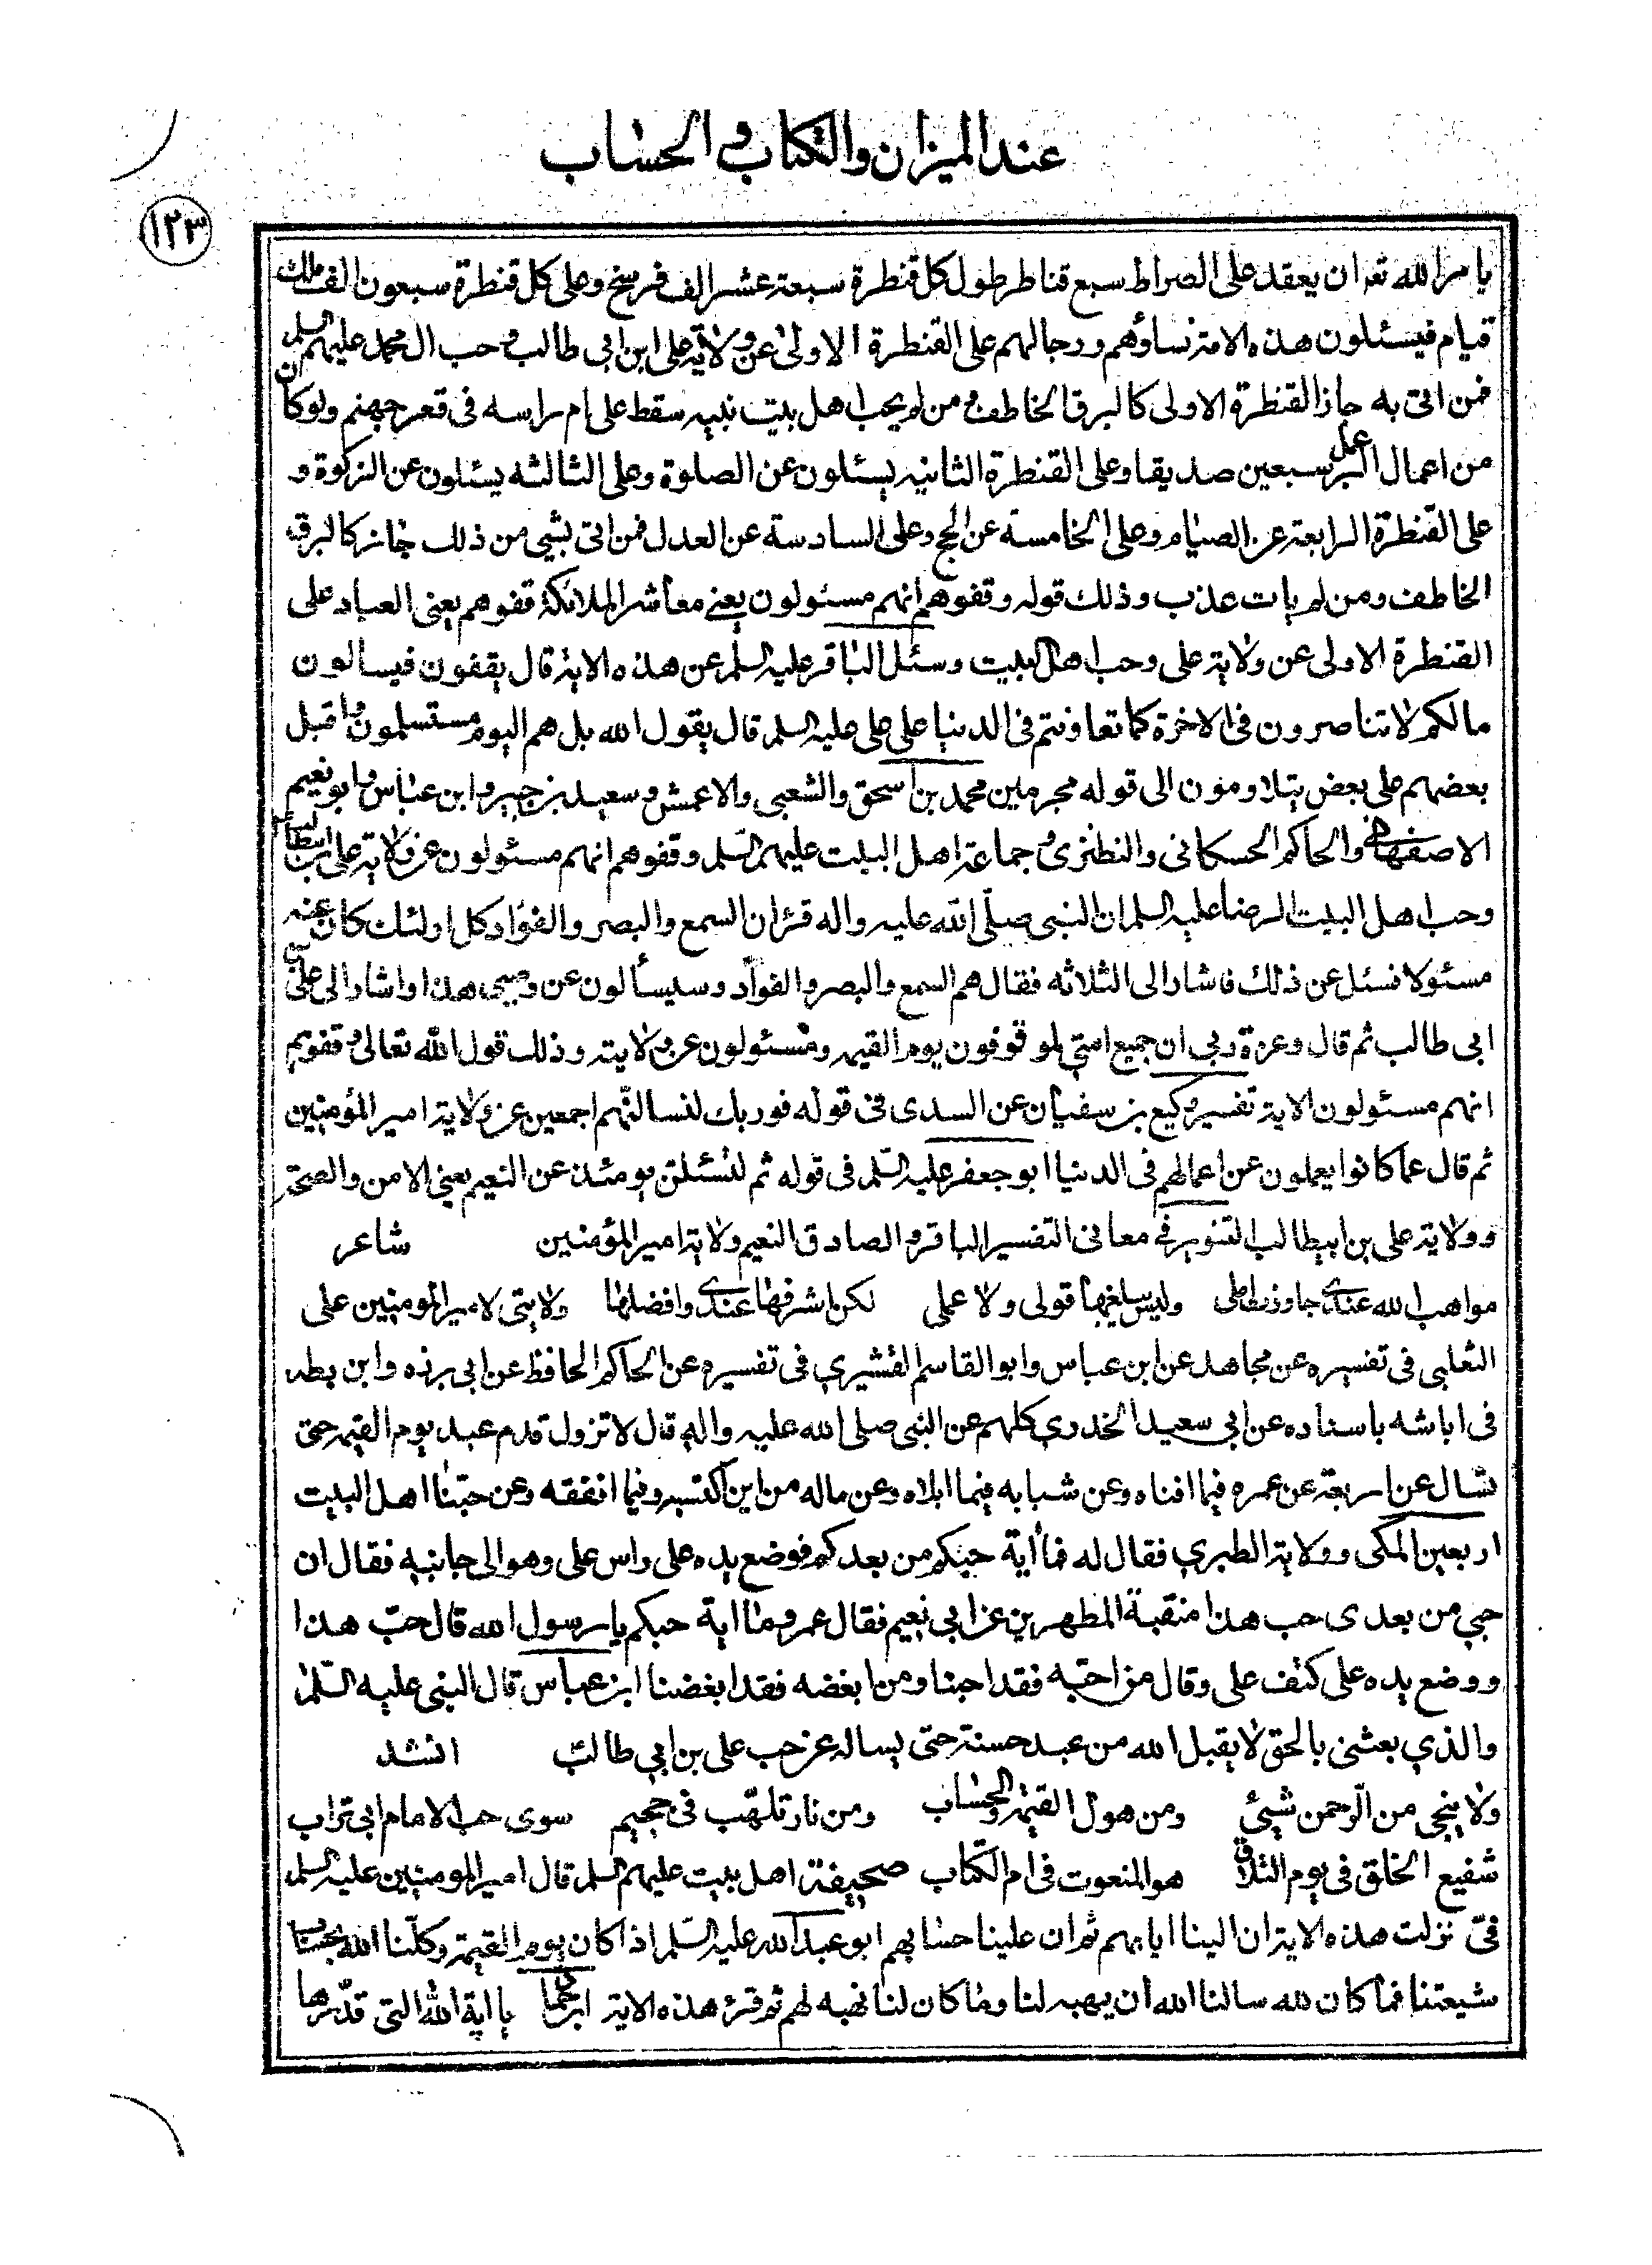 عند الميزان والكتاب و الحساب
١٢٣
يامر الله تعه ان يعقد على الصراط سبع قناطر طول كل قنطرة سبعة عشر الف فرسخ وعلى كل قنطرة سبعون الف ملك
قيام فيسئلون هذه الامة نساؤهم ورجالهم على القنطرة الاولى عن ولاية على ابن ابى طالب و حب ال محمد عليهم السلم
فمن اتى به جاز القنطرة الاولى كالبرق الخاطف و من لم يحب اهل بيت نبيه سقط على ام راسه فى قعر جهنم ولو كان
من اعمال البر عمل سبعين صديقا وعلى القنطرة الثانيه يسئلون عن الصلوة وعلى الثالثه يسئلون عن الزكوة و
على القنطرة الرابعة عن الصيام وعلى الخامسة عن الحج وعلى السادسة عن العدل فمن اتى بشيى من ذلك جاز كالبرق
الخاطف ومن لم يات عذب وذلك قوله وقفوهم انهم مسئولون يعنى معاشر الملائكة قفوهم يعنى العباد على
القنطرة الاولى عن ولاية على وحب اهل البيت وسئل الباقر عليه السلم عن هذه الاية قال يقفون فيسالون
مالكم لاتناصرون فى الاخرة كما تعاونتم فى الدنيا على على عليه السلم قال يقول الله بل هم اليوم مستسلمون واقبل
بعضهم على بعض يتلاومون الى قوله مجرمين محمد بن اسحق والشعبى والاعمش و سعيد بن جبير و ابن عباس و ابو نعيم
الاصفهانى والحاكم الحسكانى والنطنزى و جماعة اهل البيت عليهم السلم وقفوهم انهم مسئولون عن ولاية على بن ابيطالب
وحب اهل البيت الرضا عليه السلم ان النبى صلى الله عليه واله قرء ان السمع والبصر والفؤاد كل اولئك كان عنه
مسئولا فسئل عن ذلك فاشار الى الثلاثه فقال هم السمع والبصر والفوآد وسيسألون عن وصيى هذا واشار الى على بن
ابى طالب ثم قال وعزة ربى ان جميع امتى لموقوفون يوم القيمه ومسئولون عن ولايته وذلك قول الله تعالى وقفوهم
انهم مسئولون الاية تفسير وكيع بن سفيان عن السدى فى قوله فوربك لنسالنهم اجمعين عن ولاية امير المؤمنين
ثم قال عما كانوا يعملون عن اعمالهم فى الدنيا ابو جعفر عليه السلم فى قوله ثم لتسئلن يومئذ عن النعيم يعنى الامن والصحة
وولاية على بن ابيطالب التنوير فى معانى التفسير الباقر و الصادق النعيم ولاية امير المؤمنين شاعر
مواهب الله عندى جاوزت املى وليس يبلغها قولى ولا عملى لكن اشرفها عندى وافضلها ولايتى لامير المومنين على
الثعلبى فى تفسيره عن مجاهد عن ابن عباس وابو القاسم القشيرى فى تفسيره عن الحاكم الحافظ عن ابى برزه وابن بطه
فى ابانته باسناده عن ابى سعيد الخدرى كلهم عن النبى صلى الله عليه واله قال لا تزول قدم عبد يوم القيمه حتى
تسال عن اربعة عن عمره فيما افناه وعن شبابه فيما ابلاه وعن ماله من اين اكتسبه وفيما انفقه وعن حبنا اهل البيت
اربعين المكى وولاية الطبرى فقال له فما اية حبكم من بعدكم فوضع يده على راس على وهو الى جانبه فقال ان
حبى من بعدى حب هذا منقبة المطهرين عن ابى نعيم فقال عمر وما اية حبكم يا رسول الله قال حب هذا
ووضع يده على كتف على وقال من احبه فقد احبنا ومن ابغضه فقد ابغضنا ابن عباس قال النبى عليه السلم
والذي بعثنى بالحق لا يقبل الله من عبد حسنة حتى يساله عن حب على بن ابي طالب انشد
ولا ينجى من الرحمن شيئ ومن هول القيمة والحساب ومن نار تلهب فى جحيم سوى حب الامام ابى تراب
شفيع الخلق فى يوم التلاق هو المنعوت فى ام الكتاب صحيفة اهل بيت عليهم السلم قال امير المومنين عليه السلم
فى نزلت هذه الاية ان الينا ايابهم ثم ان علينا حسابهم ابو عبد الله عليه السلم اذا كان يوم القيمة وكلنا الله بحساب
شيعتنا فما كان لله سالنا الله ان يهبه لنا وما كان لنا نهبه لهم ثم قرء هذه الاية ابن حماد يا اية الله التى قدرها